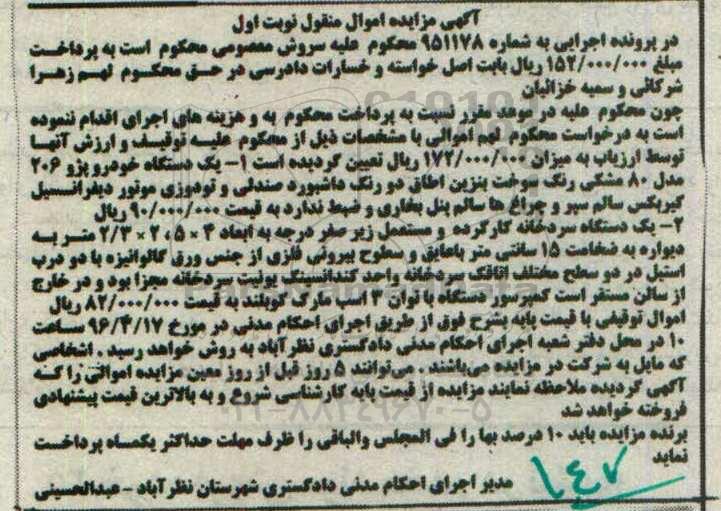 آگهی مزایده اموال منقول نوبت اول
در پرونده اجرایی به شماره ۹۵۱۱۷۸ محکوم علیه سروش معصومی محکوم است به پرداخت
مبلغ ۱۵۲/۰۰۰/۰۰۰ ریال بابت اصل خواسته و خسارات دادرسی در حق محکوم لهم زهرا
شرکائی و سمیه خزائیان
چون محکوم علیه در موعد مقرر نسبت به پرداخت محکوم به و هزینه های اجرای اقدام ننموده
است به درخواست محکوم لهم اموالی با مشخصات ذیل از محکوم علیه توقیف و ارزش آنها
توسط ارزیاب به میزان ۱۷۲/۰۰۰/۰۰۰ ریال تعیین گردیده است ۱- یک دستگاه خودرو پژو ۲۰۶
مدل ۸۰ مشکی رنگ سوخت بنزین اطاق دو رنگ داشبورد صندلی و تودوزی موتور دیفرانسیل
گیربکس سالم سپر و چراغ ها سالم پنل بخاری و ضبط ندارد به قیمت ۹۰/۰۰۰/۰۰۰ ریال
۲- یک دستگاه سردخانه کارکرده و مستعمل زیر صفر درجه به ابعاد ۴ × ۲،۵ × ۲/۳ متر به
دیواره به ضخامت ۱۵ سانتی متر باعایق و سطوح بیرونی فلزی از جنس ورق گالوانیزه با دو درب
استیل در دو سطح مختلف اتاقک سردخانه واحد کندانسینگ یونیت سردخانه مجزا بود و در خارج
از سالن مستقر است کمپرسور دستگاه با توان ۳ اسب مارک کوپلند به قیمت ۸۲/۰۰۰/۰۰۰ ریال
اموال توقیفی با قیمت پایه بشرح فوق از طریق اجرای احکام مدنی در مورخ ۹۶/۴/۱۷ ساعت
۱۰ در محل دفتر شعبه اجرای احکام مدنی دادگستری نظرآباد به روش خواهد رسید . اشخاصی
که مایل به شرکت در مزایده می‌باشند . می‌توانند ۵ روز قبل از روز معین مزایده اموالی را که
آگهی گردیده ملاحظه نمایند مزایده از قیمت پایه کارشناسی شروع و به بالاترین قیمت پیشنهادی
فروخته خواهد شد
۰۲۱-۸۸۳۴۹۶۷۰-۵
برنده مزایده باید ۱۰ درصد بها را فی المجلس والباقی را ظرف مهلت حداکثر یکماه پرداخت
نماید
مدیر اجرای احکام مدنی دادگستری شهرستان نظرآباد - عبدالحسینی
۱۴۷